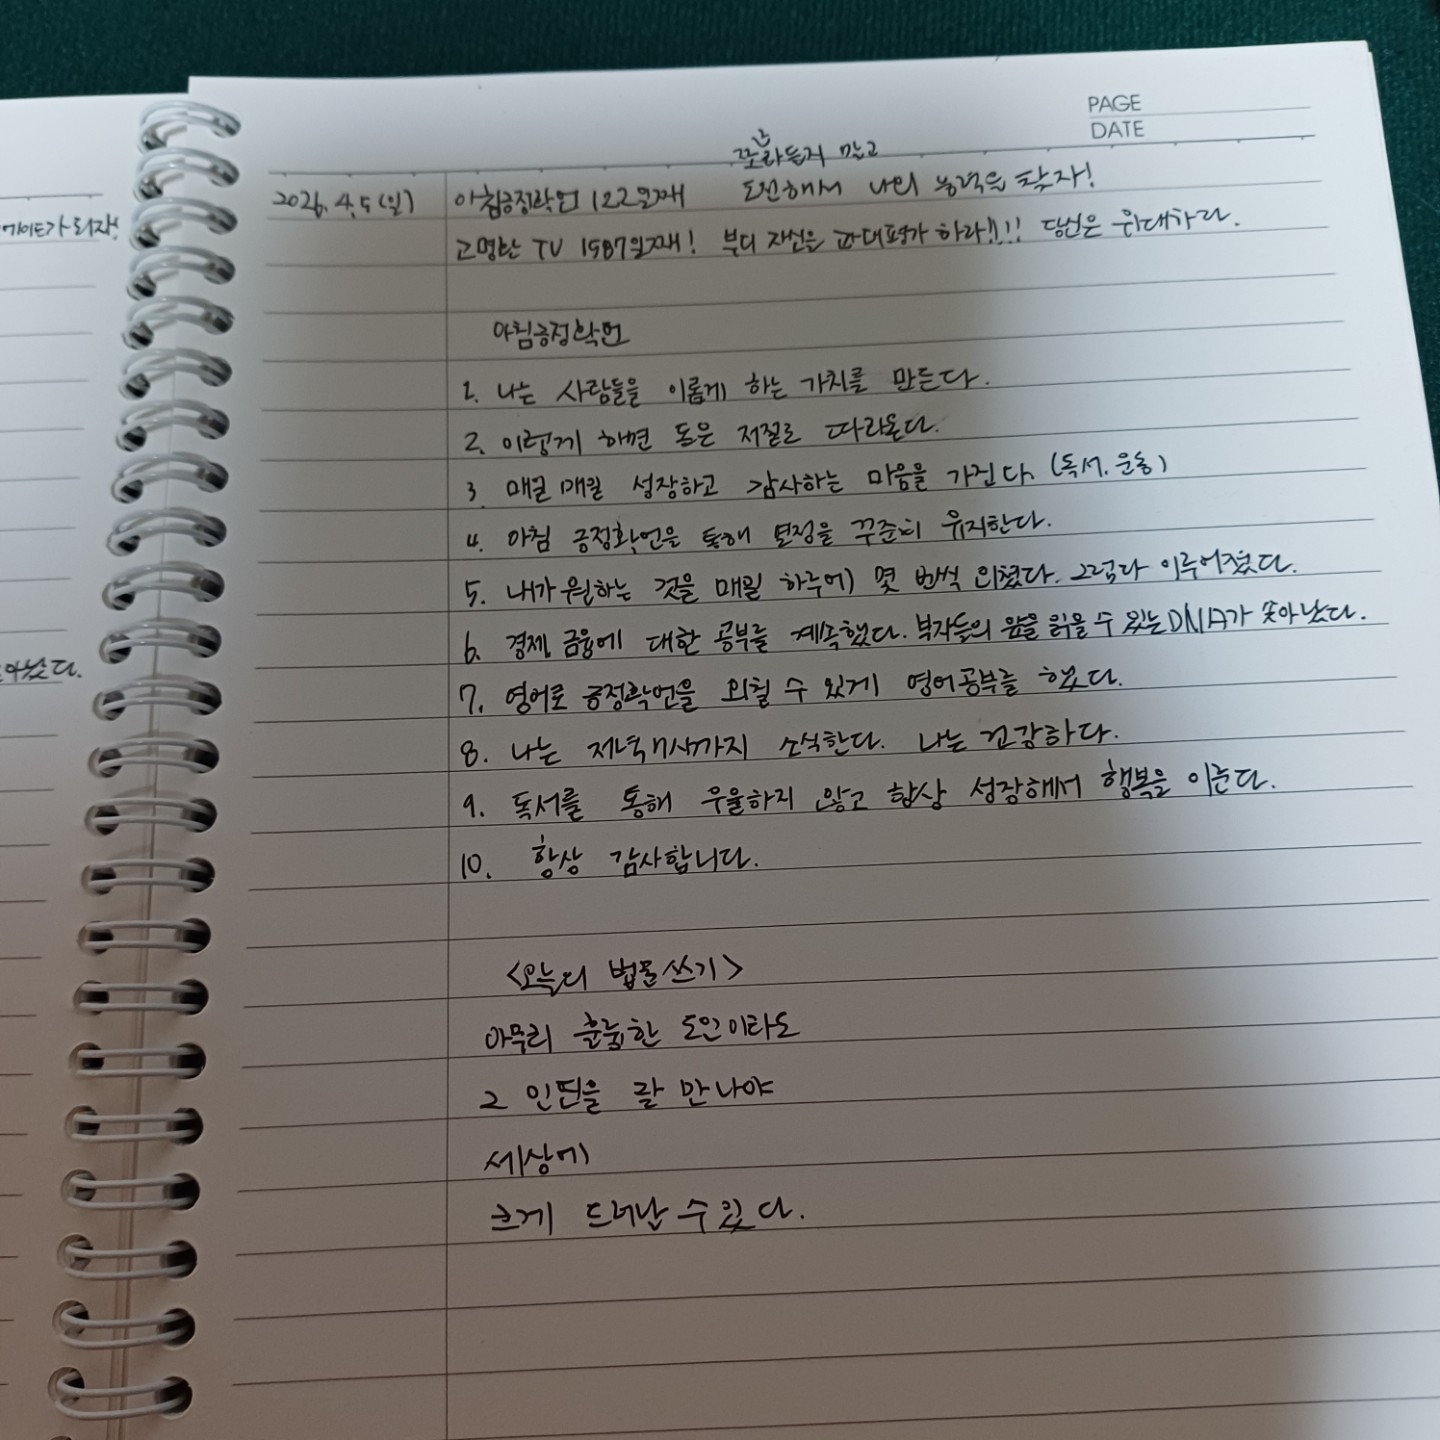 PAGE
DATE
쪼라들지 말고
2026. 4. 5 (일) 아침긍정확언 122일째 도전해서 나의 능력을 찾자!
고명환 TV 1587일째! 부디 자신을 과대평가 하라!!!! 당신은 위대하다.
아침긍정확언
1. 나는 사람들을 이롭게 하는 가치를 만든다.
2. 이렇게 하면 돈은 저절로 따라온다.
3. 매일 매일 성장하고 감사하는 마음을 가진다. (독서, 운동)
4. 아침 긍정확언을 통해 열정을 꾸준히 유지한다.
5. 내가 원하는 것을 매일 하루에 몇 번씩 외쳤다. 그랬더니 이루어졌다.
6. 경제, 금융에 대한 공부를 계속했다. 부자들의 을 읽을 수 있는 DNA가 솟아났다.
7. 영어로 긍정확언을 외칠 수 있게 영어공부를 했다.
8. 나는 저녁 7시까지 소식한다. 나는 건강하다.
9. 독서를 통해 우울하지 않고 항상 성장해서 행복을 이룬다.
10. 항상 감사합니다.
<오늘의 법문쓰기>
아무리 훌륭한 도인이라도
그 인연을 잘 만나야
세상에
크게 드러날 수 있다.
에이트가 되자!
났다.